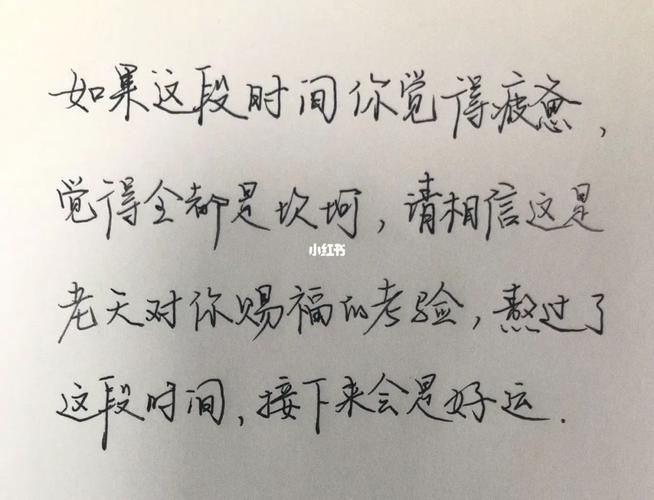 如果这段时间你觉得疲惫，
觉得全都是坎坷，请相信这是
小红书
老天对你赐福的考验，熬过了
这段时间，接下来会是好运.